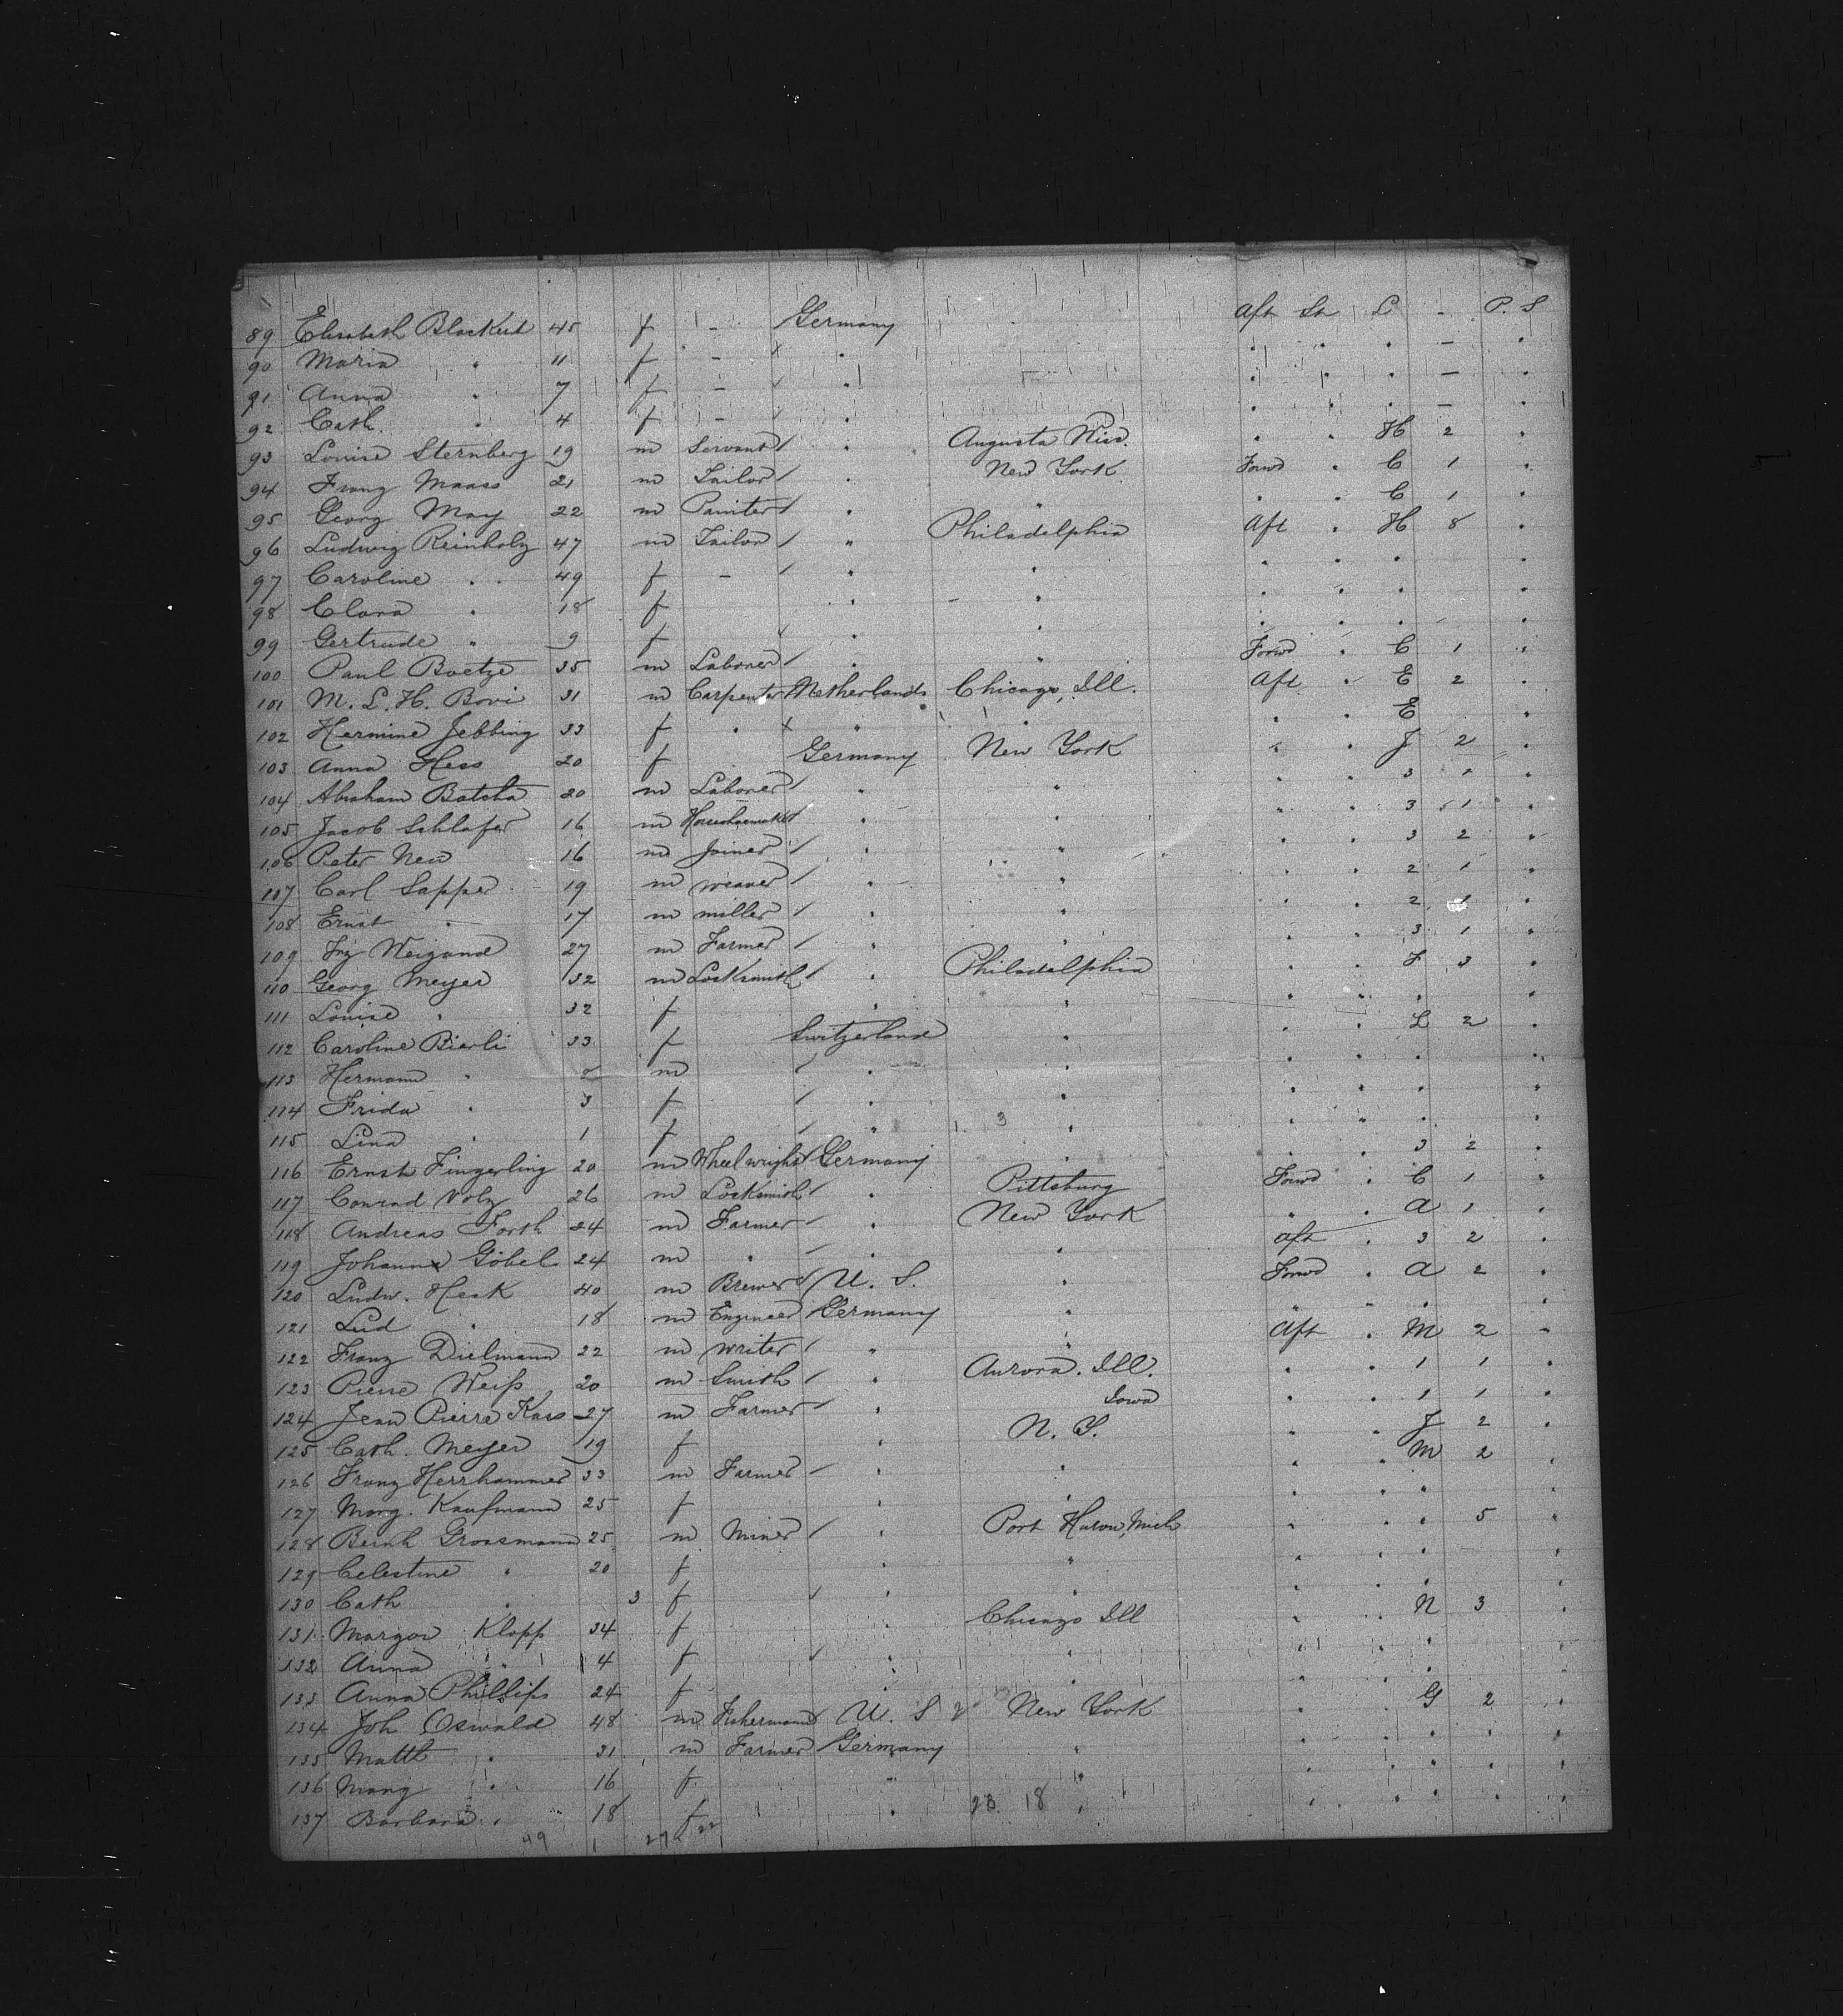 89 Elisabeth Blackert 45 f - Germany Aft St L - P. S
90 Maria " 11 f - " " " " - "
91 Anna " 7 f - " " " " - "
92 Cath. " 4 f - " " " " - "
93 Louise Sternberg 19 m Servant " Augusta Wisc. " " H 2 "
94 Franz Maass 21 m Tailor " New York Forwd " C 1 "
95 Georg May 22 m Painter " " " " C 1 "
96 Ludwig Reinholz 47 m Tailor " Philadelphia Aft " H 8 "
97 Caroline " 49 f - " " " " " "
98 Clara " 18 f " " " " " "
99 Gertrude " 9 f " " " " " "
100 Paul Boetze 35 m Laborer " " Forwd " C 1 "
101 M. L. H. Bovi 31 m Carpenter Netherlands Chicago, Ill. Aft " E 2 "
102 Hermine Jebbing 33 f " " " " " E "
103 Anna Hess 20 f Germany New York " " J 2 "
104 Abraham Batcha 20 m Laborer " " " " 3 1 "
105 Jacob Schlafer 16 m " " " " 3 1 "
106 Peter New 16 m Joiner " " " " 3 2 "
107 Carl Sapper 19 m weaver " " " " 2 1 "
108 Ernst " 17 m miller " " " " 2 1 "
109 Frz Weigand 27 m Farmer " " " " 3 1 "
110 Georg Meyer 32 m Locksmith " Philadelphia " " F 3 "
111 Louise " 32 f " " " " " "
112 Caroline Bierli 33 f Switzerland " " " L 2 "
113 Hermann " m " " " " " "
114 Frida " 3 f " " " " " "
115 Lina " 1 f " 3 " " " " "
116 Ernst Fingerling 20 m Wheelwright Germany " " " 3 2 "
117 Conrad Volz 26 m Locksmith " Pittsburg Forwd " C 1 "
118 Andreas Forth 24 m Farmer " New York " " A 1 "
119 Johann Göbel 24 m " " " aft " 3 2 "
120 Ludw. Heck 40 m Brewer U. S. " Forwd " A 2 "
121 Lud " 18 m Engineer Germany " " " " "
122 Franz Dielmann 22 m writer " " Aft " M 2 "
123 Pierre Weiß 20 m Smith " Aurora. Ill. " " 1 1 "
124 Jean Pierre Kass 27 m Farmer " Iowa " " 1 1 "
125 Cath. Meyer 19 f " N. Y. " " J 2 "
126 Franz Herrhammer 33 m Farmer " " " " M 2 "
127 Marg. Kaufmann 25 f " " " " " "
128 Bernh Grossmann 25 m Miner " Port Huron, Mich " " " 5 "
129 Celestine " 20 f " " " " " "
130 Cath " 3 f " " " " " "
131 Margar Klopp 34 f " Chicago Ill " " N 3 "
132 Anna " 4 f " " " " " "
133 Anna Phillips 24 f " " " " "
134 Joh Oswald 48 m Fishermann U. S New York " " G 2 "
135 Matth " 31 m Farmer Germany " " " " " "
136 Marg " 16 f " " " " " " "
137 Barbara " 18 f " 18 " " " " " "
49 1 27 22